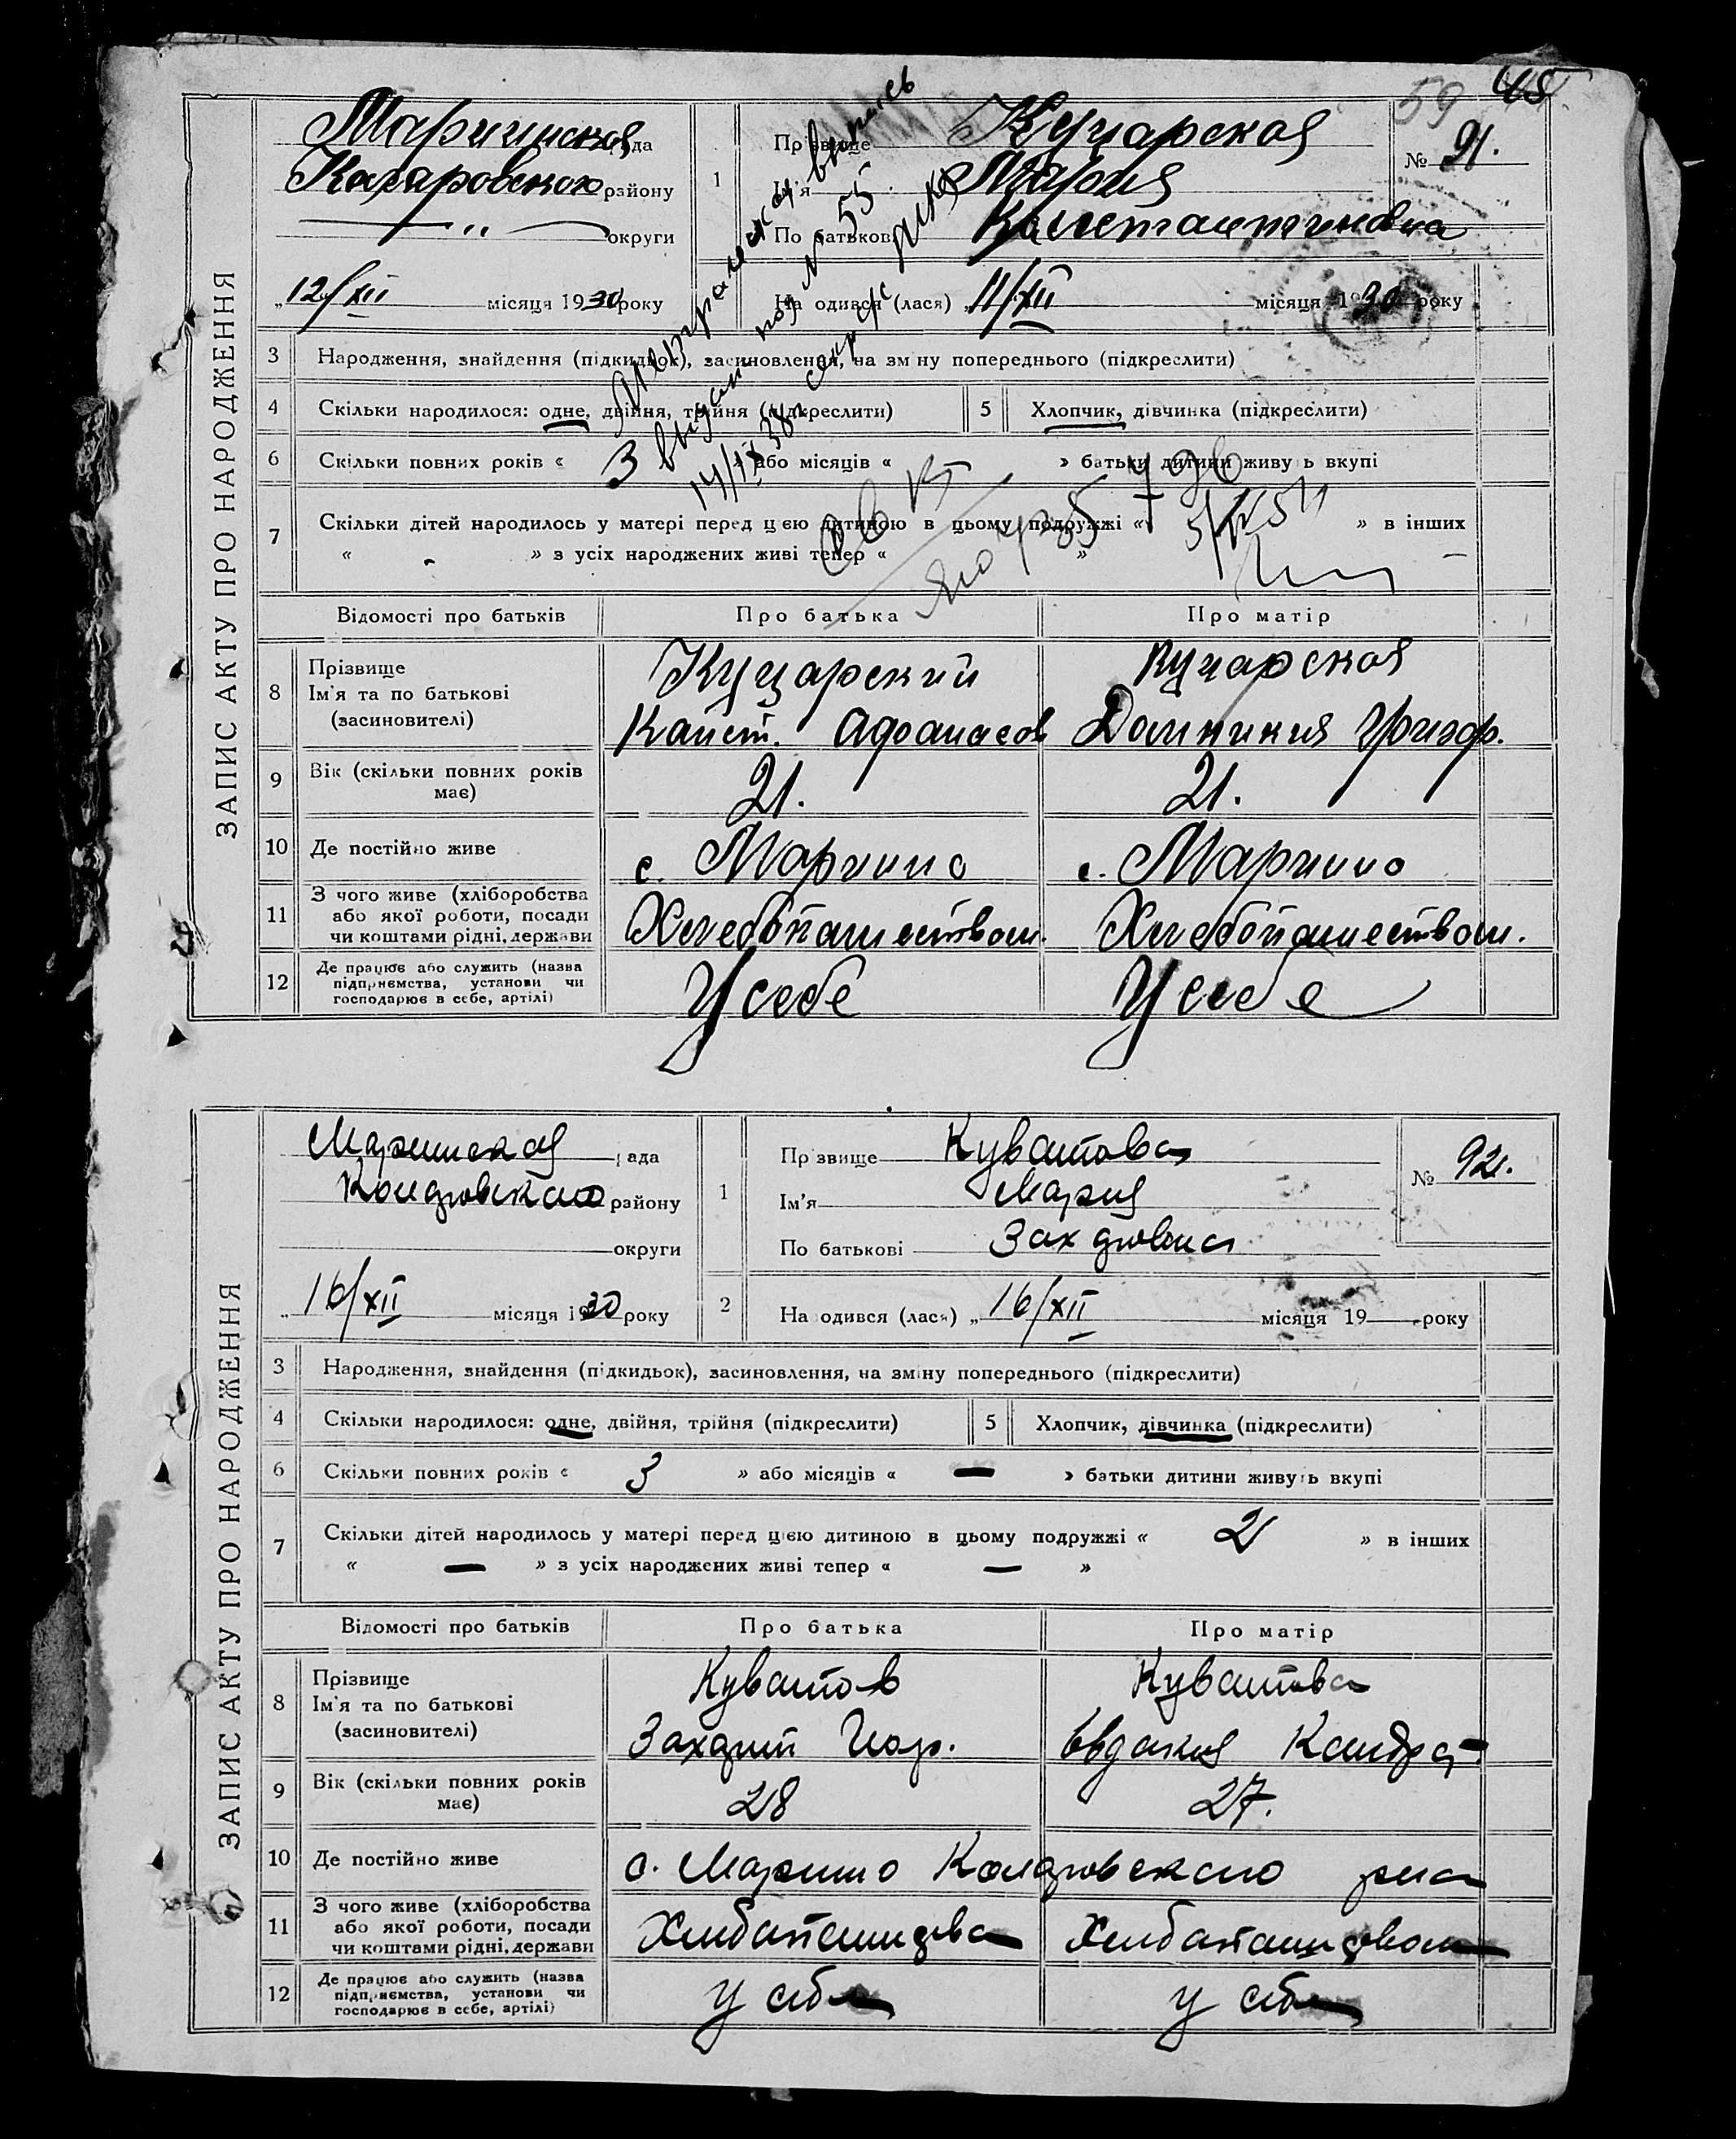 59 45
ЗАПИС АКТУ ПРО НАРОДЖЕННЯ
Марьинская рада
района району
округи
12/XII місяця 1930 року
1 Прзвище Куцарская
Ім'я Мария
По батькові Константиновна
№ 91.
На одився (лася) „ 11/XII місяця 1930 року
Метрическая выпись
выдан под № 55
14/IX 38 г
3 Народження, знайдення (підкидьок), засиновлення, на зміну попереднього (підкреслити)
4 Скільки народилося: одне, двійня, трійня (підкреслити) 5 Хлопчик, дівчинка (підкреслити)
6 Скільки повних років « 3 » або місяців « » батьки дитини живуть вкупі
7 Скільки дітей народилось у матері перед цією дитиною в цьому подружжі « » в інших
« - » з усіх народжених живі тепер « »
Відомості про батьків Про батька Про матір
8 Прізвище Ім'я та по батькові (засновителі) Куцарский Куцарская
Конст. Афанасов Домникия Григор.
9 Вік (скільки повних років має) 21. 21.
10 Де постійно живе с. Марьино с. Марьино
11 З чого живе (хліборобства або якої роботи, посади чи коштами рідні, держави Хлебопашеством. Хлебопашеством.
12 Де працює або служить (назва підприємства, установи чи господарює в себе, артілі) У себе У себе
ЗАПИС АКТУ ПРО НАРОДЖЕННЯ
Маринская рада
району
округи
„ 16/XII місяця 1930 року
1 Прзвище Куватова
Ім'я Мария
По батькові Захаровна
№ 92.
2 На одився (лася) „ 16/XII місяця 19 року
3 Народження, знайдення (підкидьок), засиновлення, на зміну попереднього (підкреслити)
4 Скільки народилося: одне, двійня, трійня (підкреслити) 5 Хлопчик, дівчинка (підкреслити)
6 Скільки повних років « 3 » або місяців « — » батьки дитини живуть вкупі
7 Скільки дітей народилось у матері перед цією дитиною в цьому подружжі « 2 » в інших
« — » з усіх народжених живі тепер « — »
Відомості про батьків Про батька Про матір
8 Прізвище Ім'я та по батькові (засиновителі) Куватов Куватова
Захарий Евдокия Кондра
9 Вік (скільки повних років має) 28 27.
10 Де постійно живе с. Марино рна
11 З чого живе (хліборобства або якої роботи, посади чи коштами рідні, держави
12 Де працює або служить (назва підприємства, установи чи господарює в себе, артілі) у себя у себя